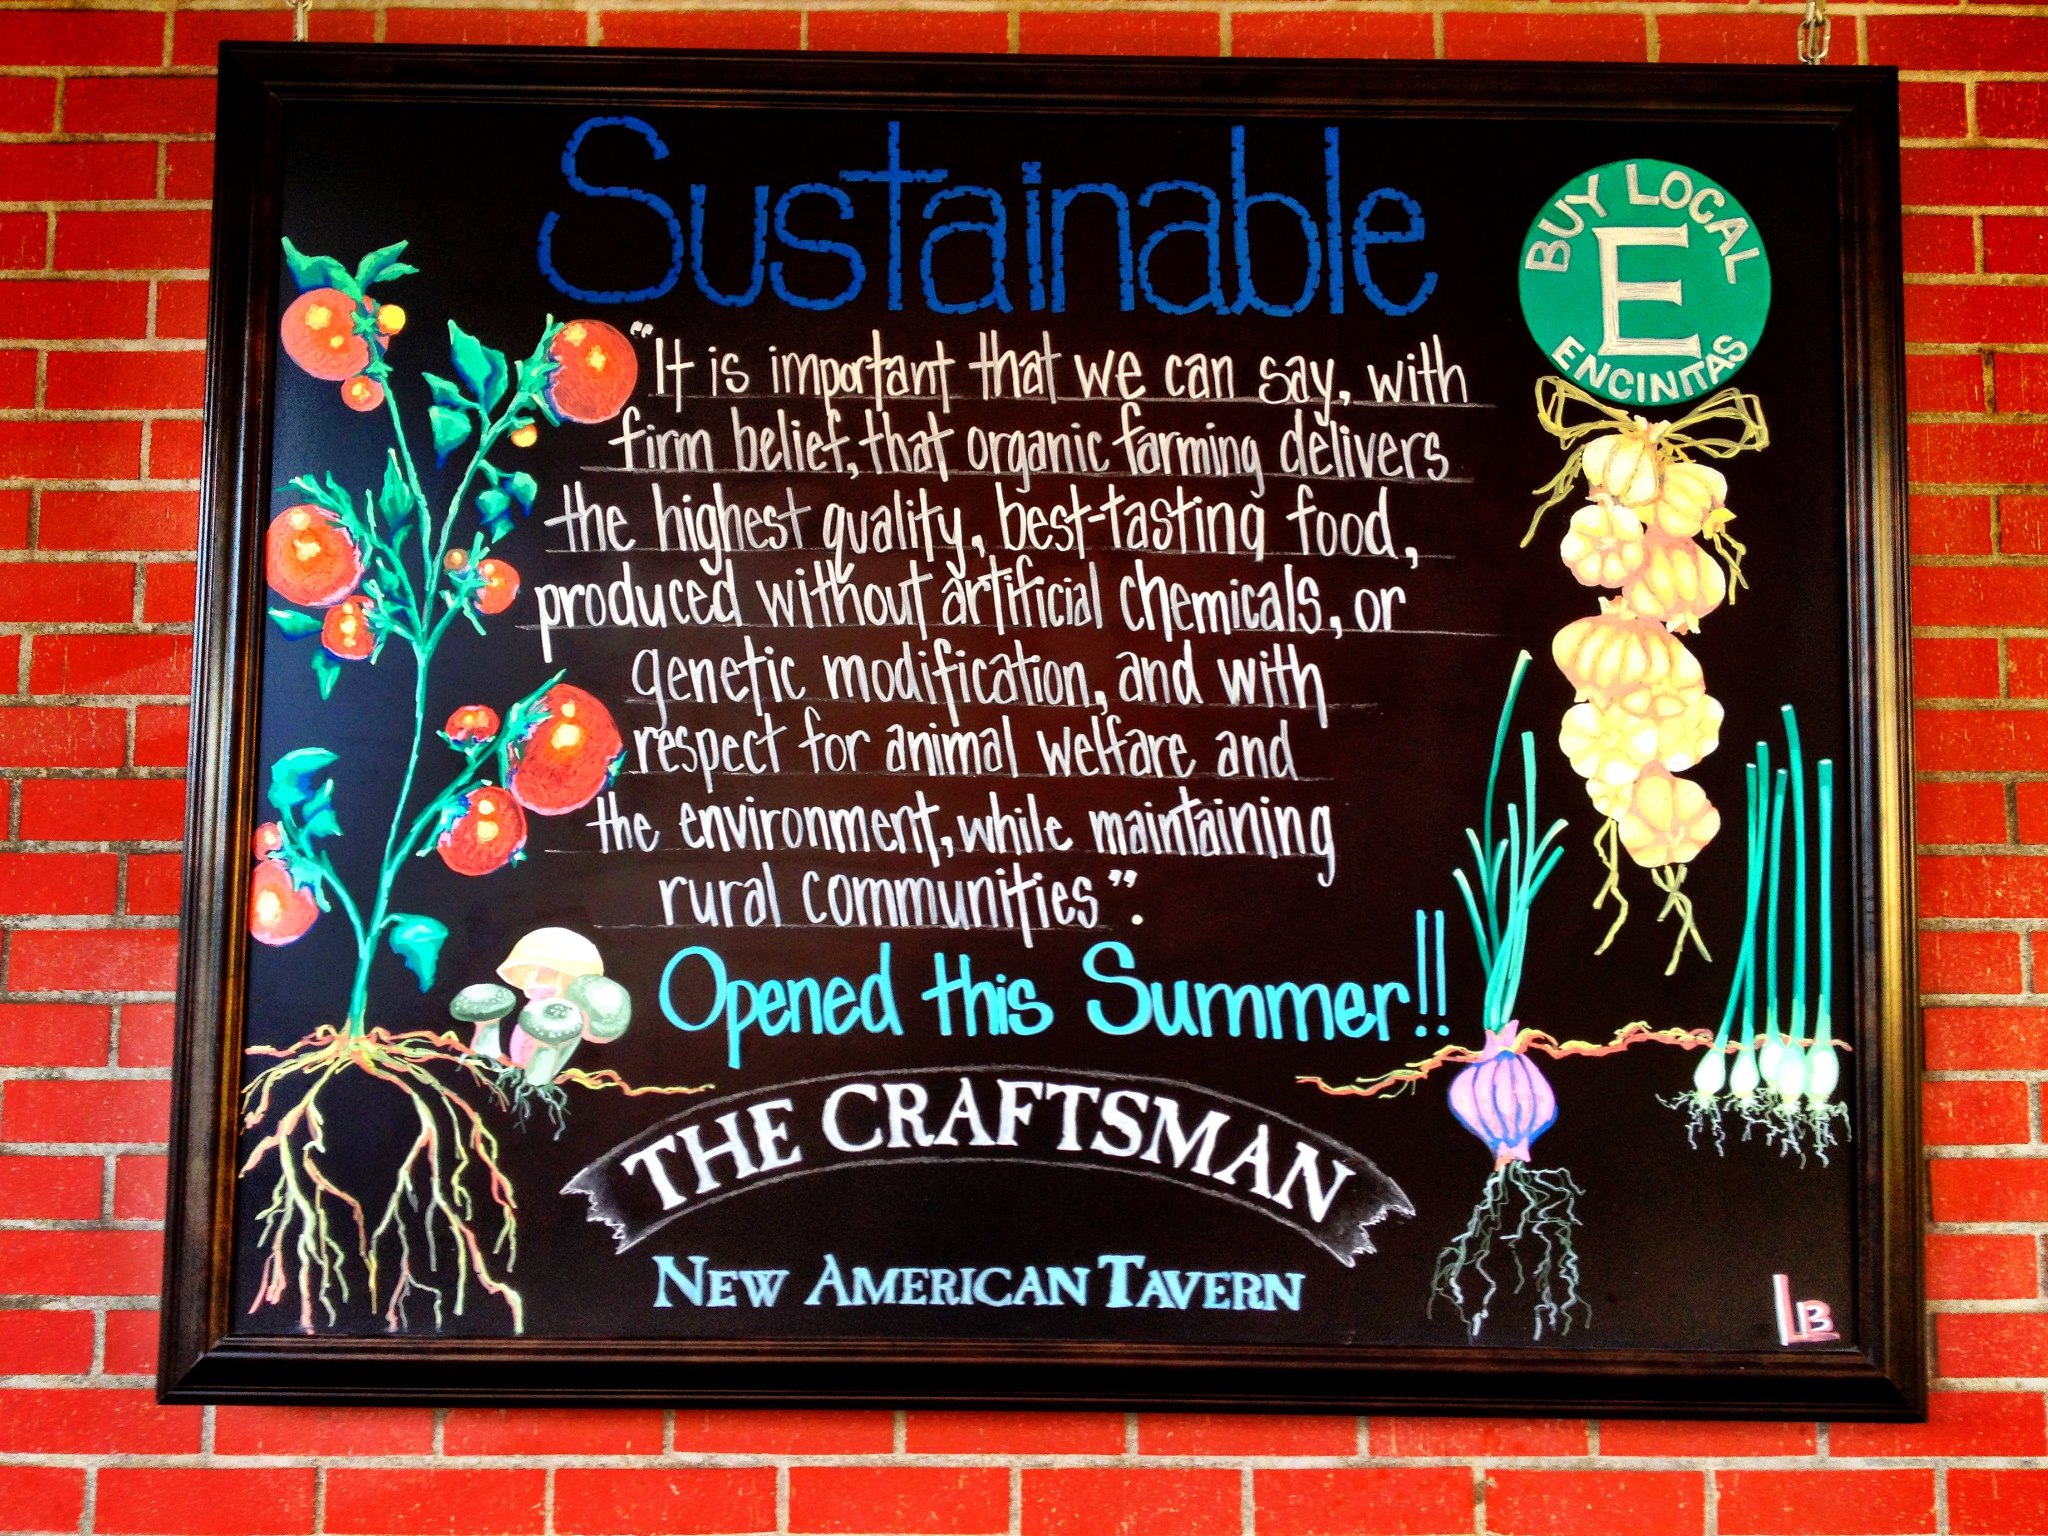 Sustainable
BUY LOCAL
E
ENCINITAS
"It is important that we can say, with
firm belief, that organic farming delivers
the highest quality, best-tasting food,
produced without artificial chemicals, or
genetic modification, and with
respect for animal welfare and
the environment, while maintaining
rural communities".
Opened this Summer!!
THE CRAFTSMAN
NEW AMERICAN TAVERN
LB